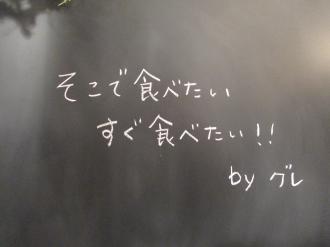 そこで食べたい
すぐ食べたい!!
by グレ